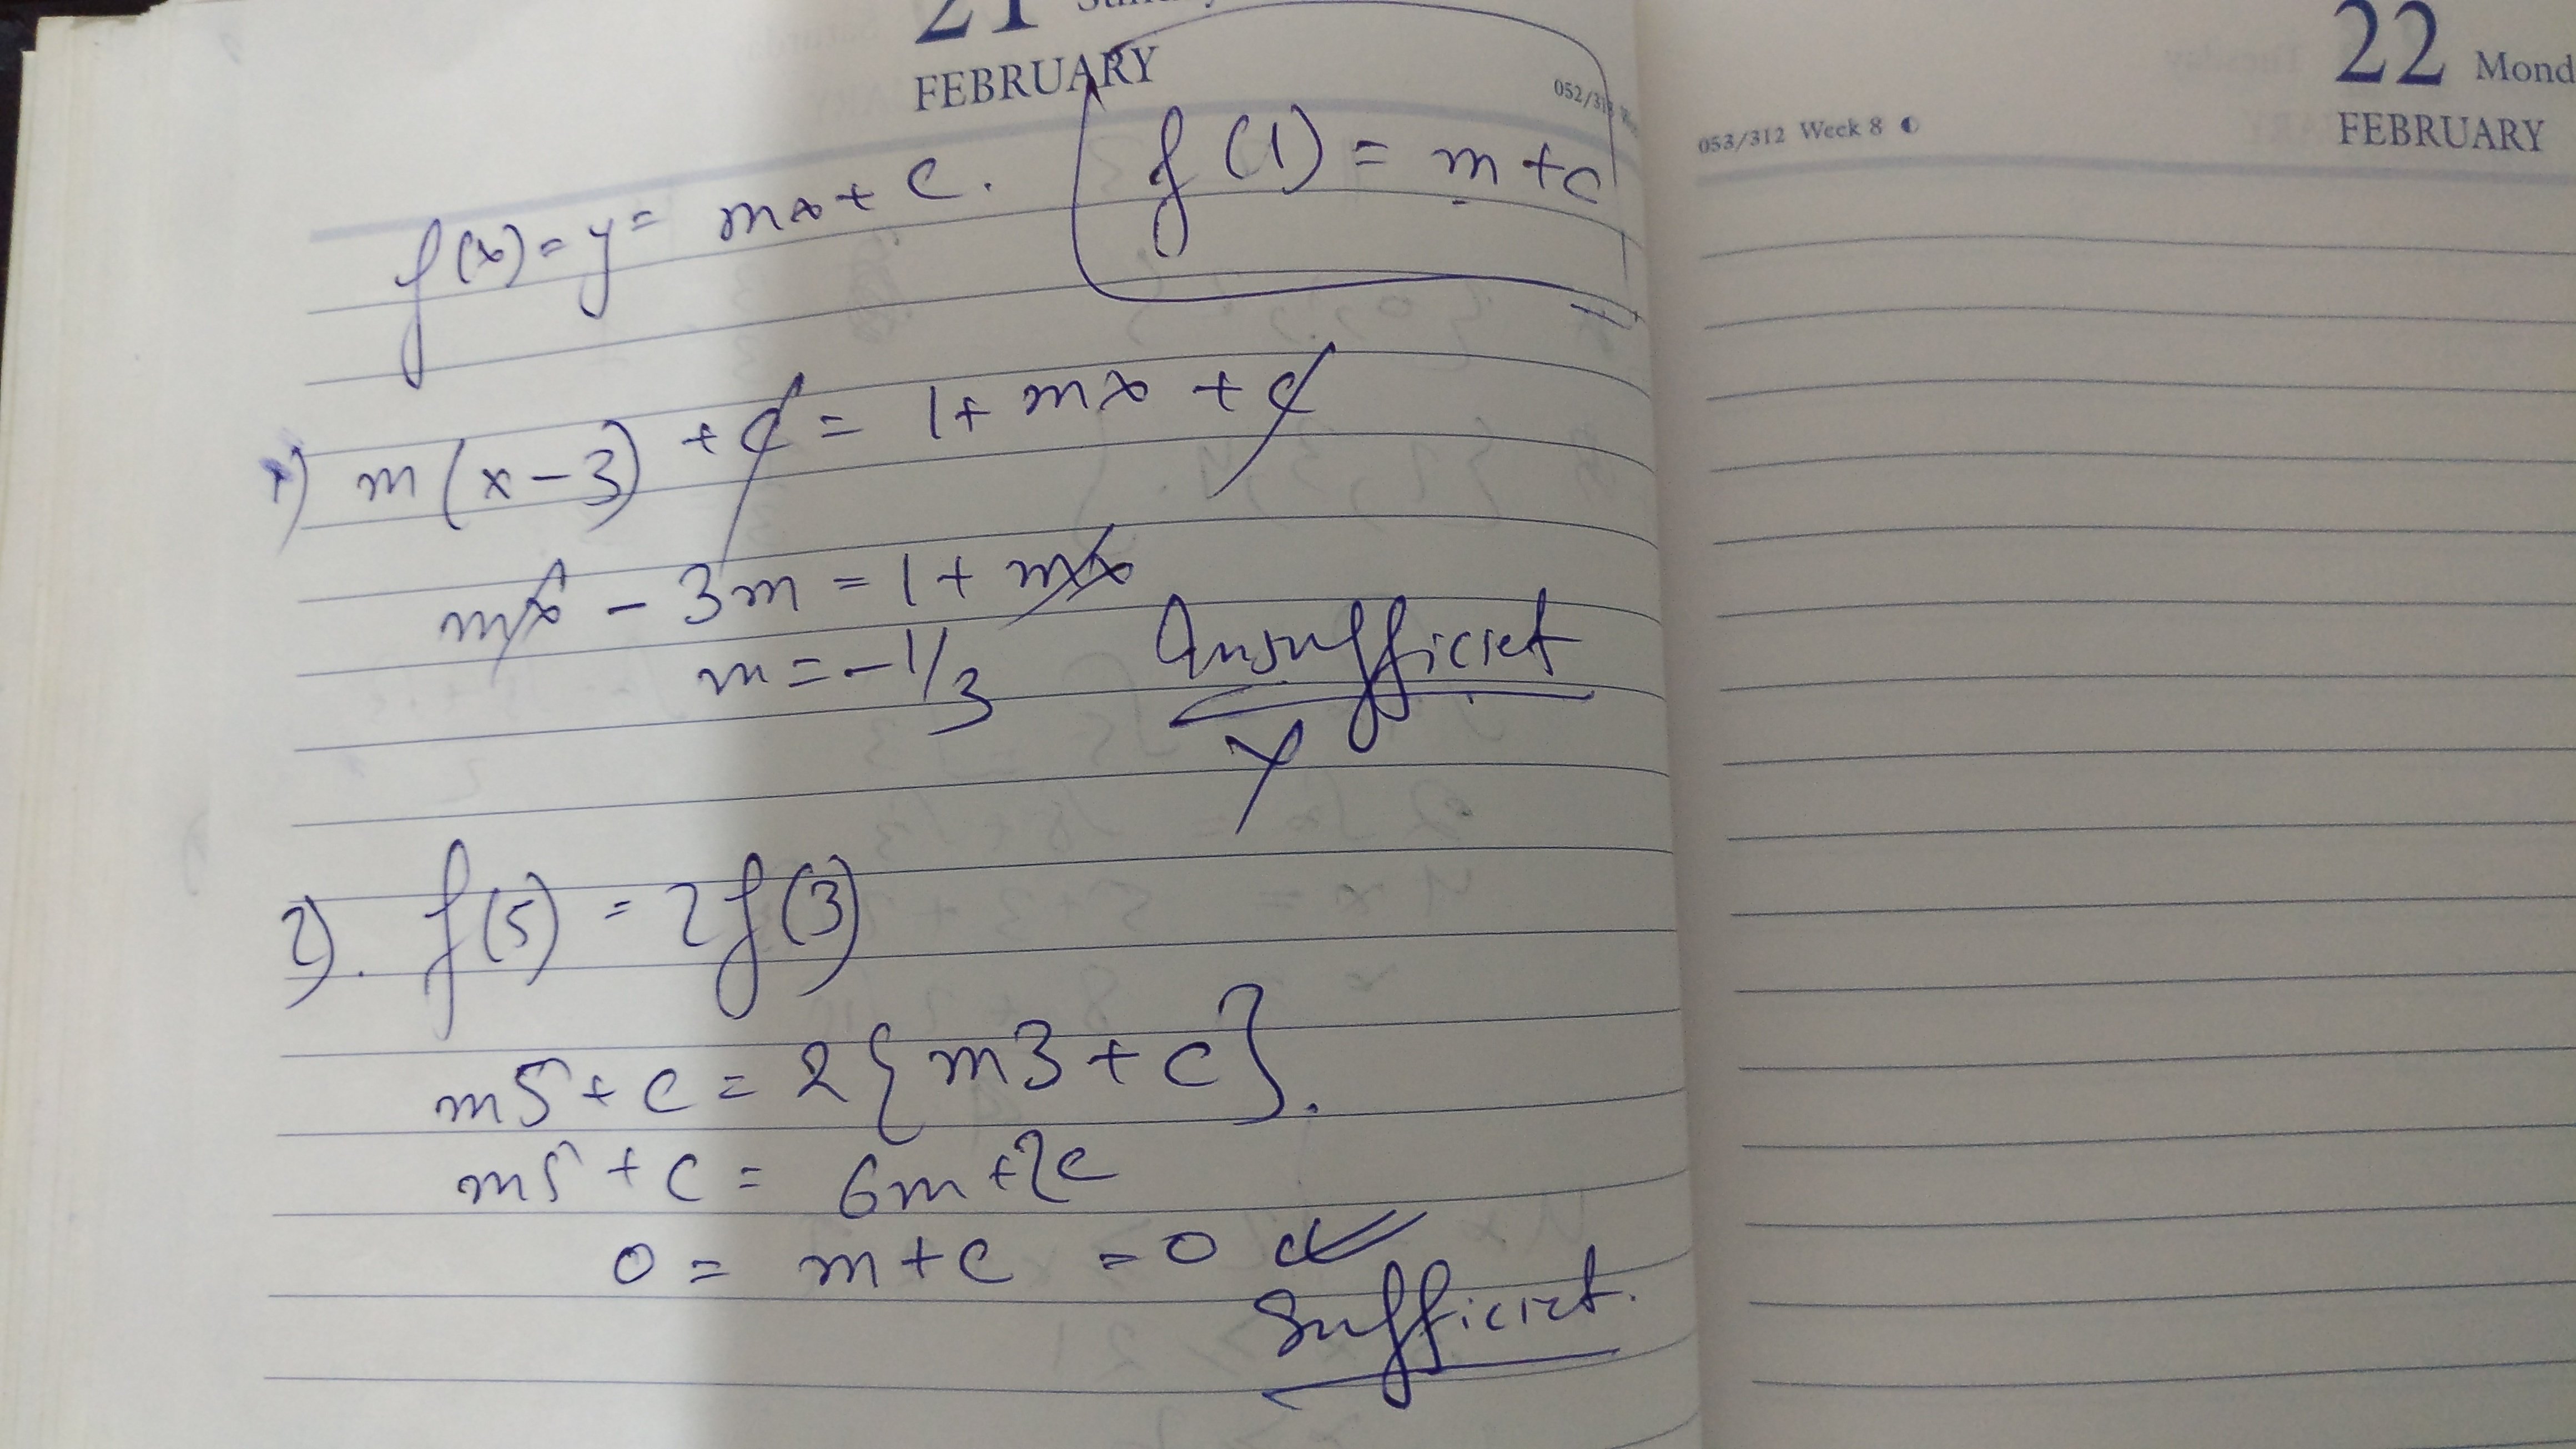 21
FEBRUARY
f(x) = y = mx + c.
f(1) = m + c
1) m(x-3) + c = 1 + mx + c
mx - 3m = 1 + mx
m = -1/3
Insufficiet
2). f(5) = 2f(3)
m5 + c = 2{m3 + c}.
m5 + c = 6m + 2c
0 = m + c = 0
Sufficiet.
22 Mond
FEBRUARY
053/312 Week 8